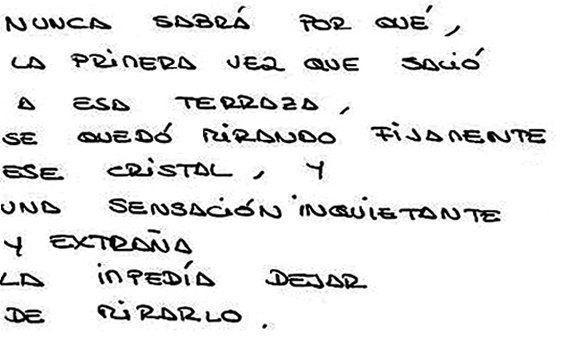 NUNCA SABRÁ POR QUÉ,
LA PRIMERA VEZ QUE SALIÓ
A ESA TERRAZA,
SE QUEDÓ MIRANDO FIJAMENTE
ESE CRISTAL, Y
UNA SENSACIÓN INQUIETANTE
Y EXTRAÑA
LA IMPEDÍA DEJAR
DE MIRARLO.